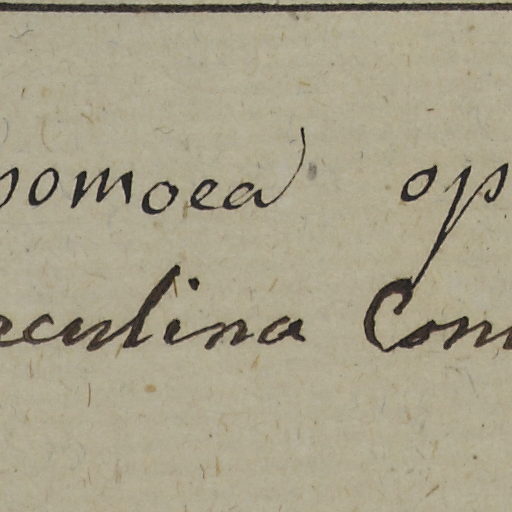 pomoea op
aculina Com